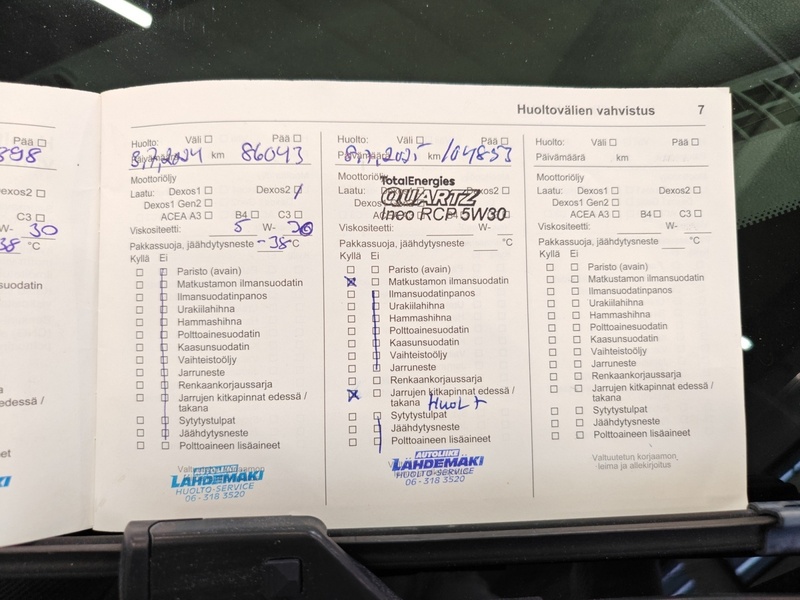 Huoltovälien vahvistus 7
398
Pää
Dexos2
C3
W- 30
38 °C
suodatin
edessä /
Huolto: Väli Pää
Päivämäärä 3,7,2024 km 86043
Moottoriöljy
Laatu: Dexos1 Dexos2
Dexos1 Gen2
ACEA A3 B4 C3
Viskositeetti: 5 W- 30
Pakkassuoja, jäähdytysneste -38 °C
Kyllä Ei
Paristo (avain)
Matkustamon ilmansuodatin
Ilmansuodatinpanos
Urakiilahihna
Hammashihna
Polttoainesuodatin
Kaasunsuodatin
Vaihteistoöljy
Jarruneste
Renkaankorjaussarja
Jarrujen kitkapinnat edessä /
takana
Sytytystulpat
Jäähdytysneste
Polttoaineen lisäaineet
AUTOLIIKE
LÄHDEMÄKI
HUOLTO-SERVICE
06-318 3520
Huolto: Väli Pää
Päivämäärä 8,7,2025 km 104853
Moottoriöljy
TotalEnergies
Laatu: Dexos2
QUARTZ
Dexos1 Gen2
ACEA A3 B4 C3
Ineo RCP 5W30
Viskositeetti: W-
Pakkassuoja, jäähdytysneste °C
Kyllä Ei
Paristo (avain)
Matkustamon ilmansuodatin
Ilmansuodatinpanos
Urakiilahihna
Hammashihna
Polttoainesuodatin
Kaasunsuodatin
Vaihteistoöljy
Jarruneste
Renkaankorjaussarja
Jarrujen kitkapinnat edessä /
takana Huolt
Sytytystulpat
Jäähdytysneste
Polttoaineen lisäaineet
AUTOLIIKE
LÄHDEMÄKI
HUOLTO-SERVICE
06-318 3520
Huolto: Väli Pää
Päivämäärä km
Moottoriöljy
Laatu: Dexos1 Dexos2
Dexos1 Gen2
ACEA A3 B4 C3
Viskositeetti: W-
Pakkassuoja, jäähdytysneste °C
Kyllä Ei
Paristo (avain)
Matkustamon ilmansuodatin
Ilmansuodatinpanos
Urakiilahihna
Hammashihna
Polttoainesuodatin
Kaasunsuodatin
Vaihteistoöljy
Jarruneste
Renkaankorjaussarja
Jarrujen kitkapinnat edessä /
takana
Sytytystulpat
Jäähdytysneste
Polttoaineen lisäaineet
Valtuutetun korjaamon
leima ja allekirjoitus